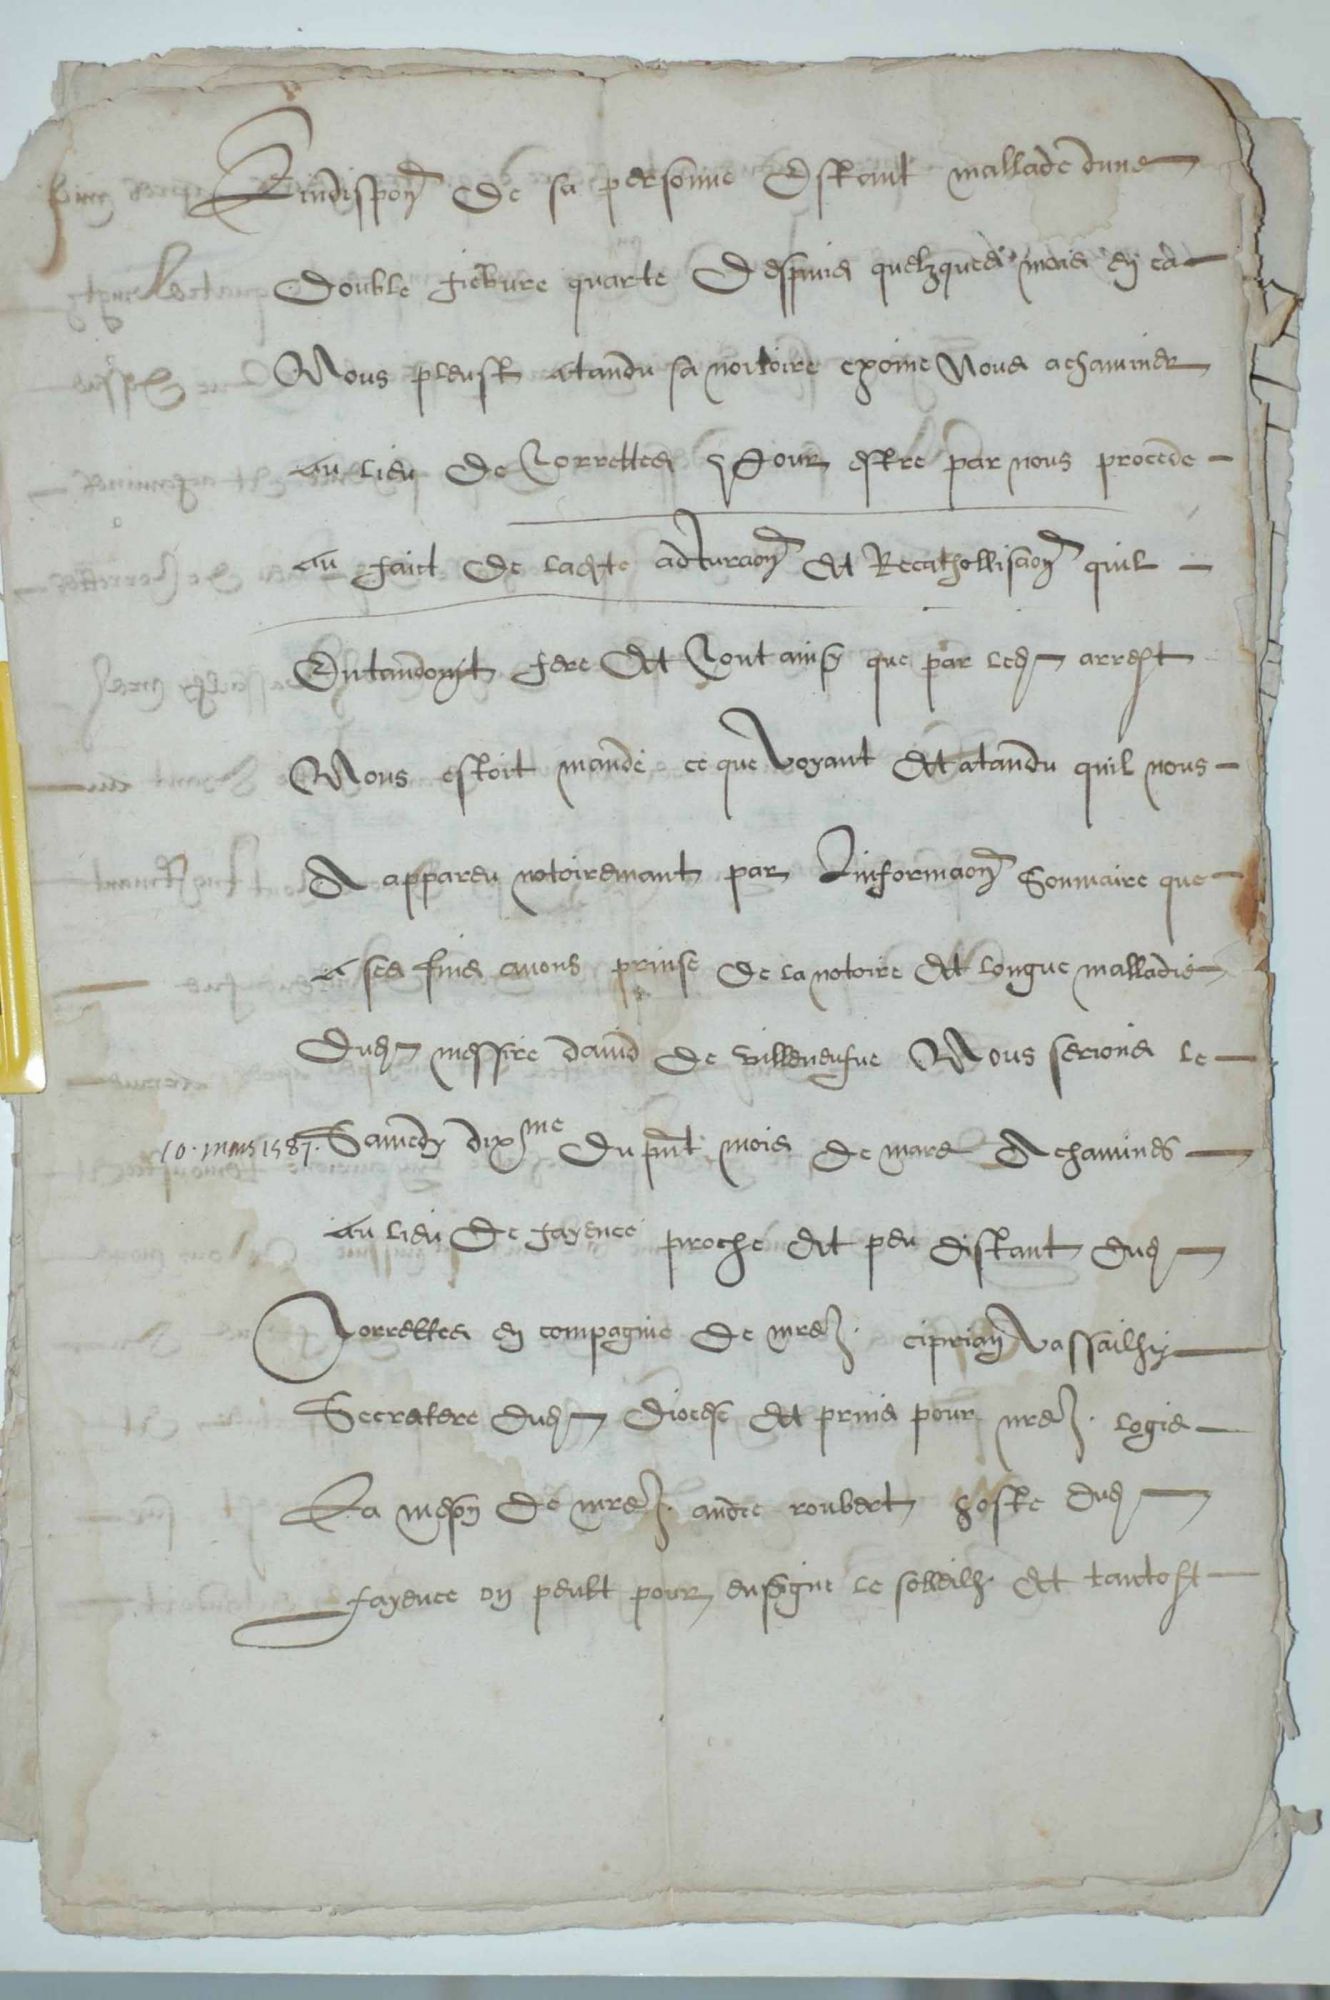 Lindispon de sa personne Estant mallade dune
double fiebure quarte Despuis quelzques mois en ca
Nous pleust atandu sa noitoire exoine Nous achaminer
au lieu de Torrettes Pour estre par nous procede
au faict de ladte adiuraon Et Recathollisaon quil
Entandoyt fere Et Tout ainsy que par led arrest
Nous estoit mandé ce que Voyant Et atandu quil nous
A appareu notoiremant par Linformaon Sommaire que
a ses fins auons prinse de la notoire Et longue malladie
Dud messire dauid de villeneufue Nous serions le
10. mars 1587. Samedy dixme du pnt mois de mars Achaminés
au lieu de fayence proche Et peu distant dud
Torrettes en compagnie de mre ciprian Vassailhy
Secretere dud diocese Et prins pour nre logis
La meson de mre andre roubert hoste dud
fayence ou peult pour ensigne le solleilh Et tantost